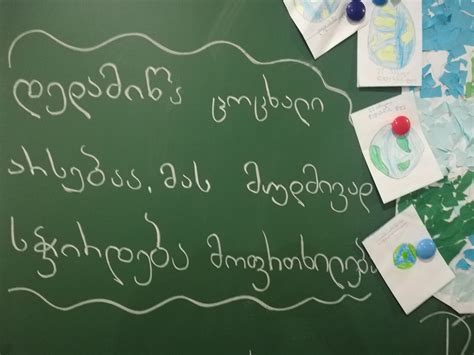 დედამიწა ცოცხალი
არსებაა. მას მუდმივად
სჭირდება მოფრთხილება